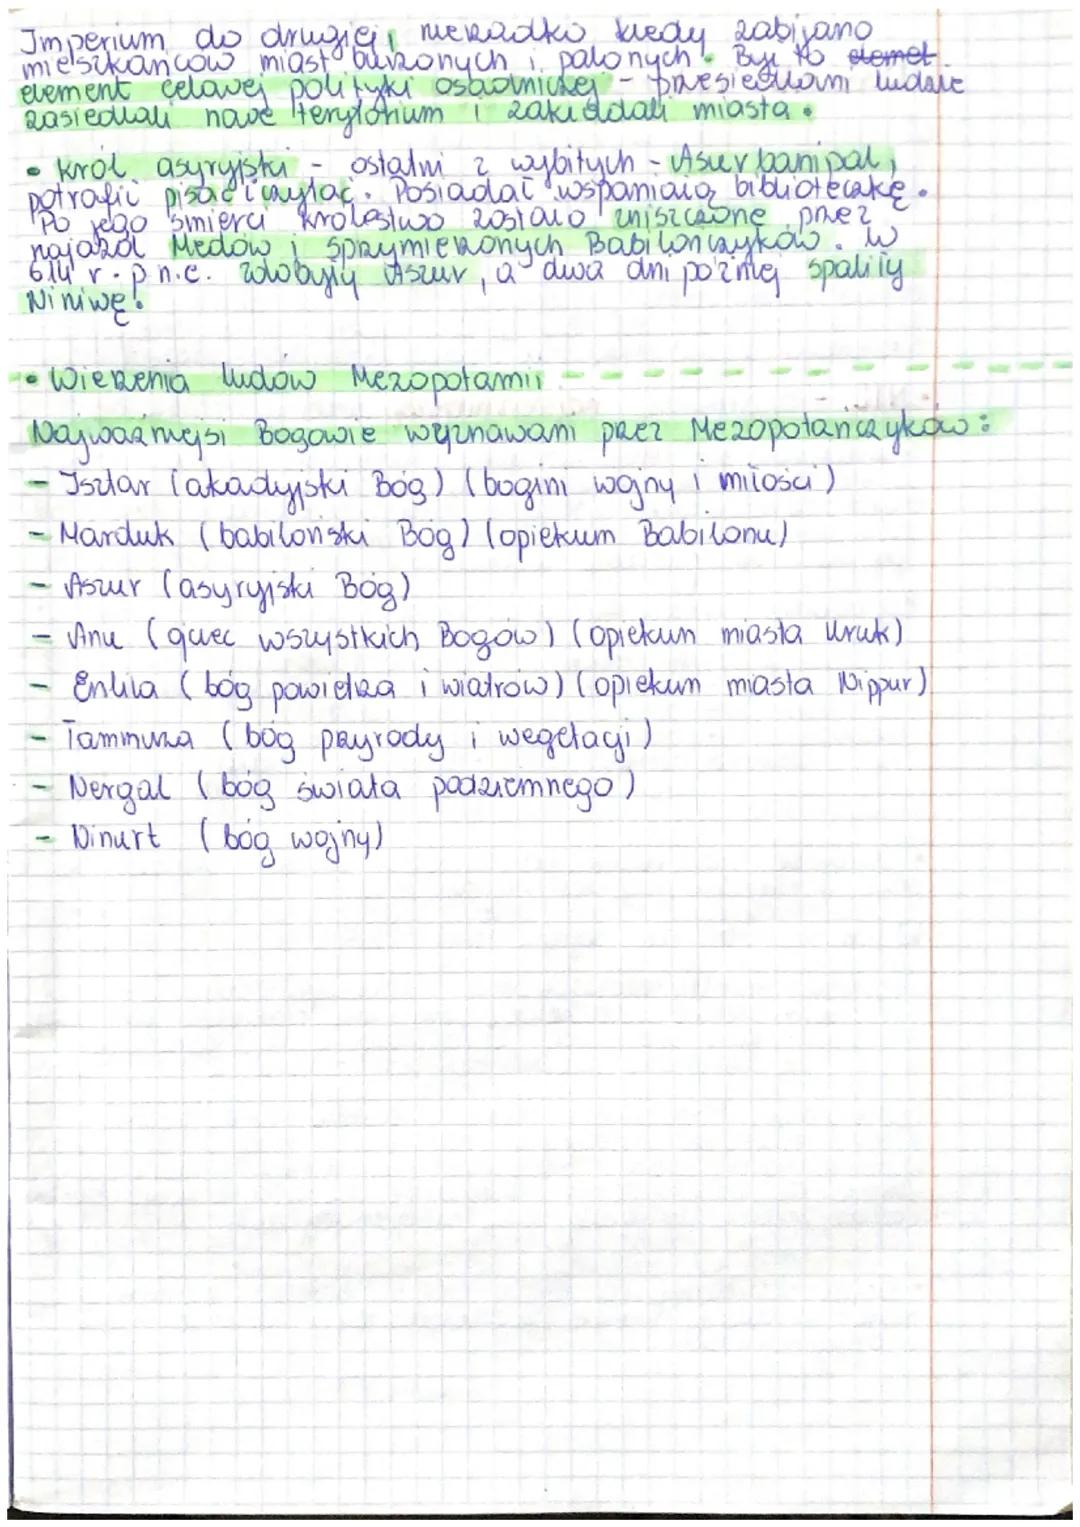 Imperium do drugiej, nierzadko kiedy zabijano
mieszkańców miast burzonych i palonych. Był to elemet
element celowej polityki osadniczej - przesiedlani ludzie
zasiedlali nowe terytorium i zakładali miasta.
• król asyryjski - ostatni z wybitych - Asurbanipal,
potrafił pisać i czytać. Posiadał wspaniałą biblioteczkę.
Po jego śmierci królestwo zostało zniszczone przez
najazd Medów i sprzymierzonych Babilończyków. W
614 r. p.n.e. zdobyły Aszur, a dwa dni później spaliły
Niniwę.
• Wierzenia ludów Mezopotamii
Najważniejsi Bogowie wyznawani przez Mezopotańczyków:
- Isztar (akadyjski Bóg) (bogini wojny i miłości)
- Marduk (babiloński Bóg) (opiekum Babilonu)
- Aszur (asyryjski Bóg)
- Anu (ojciec wszystkich Bogów) (opiekun miasta Uruk)
- Enlila (bóg powietrza i wiatrów) (opiekun miasta Nippur)
- Tammuza (bóg przyrody i wegetacji)
- Nergal (bóg świata podziemnego)
- Ninurt (bóg wojny)